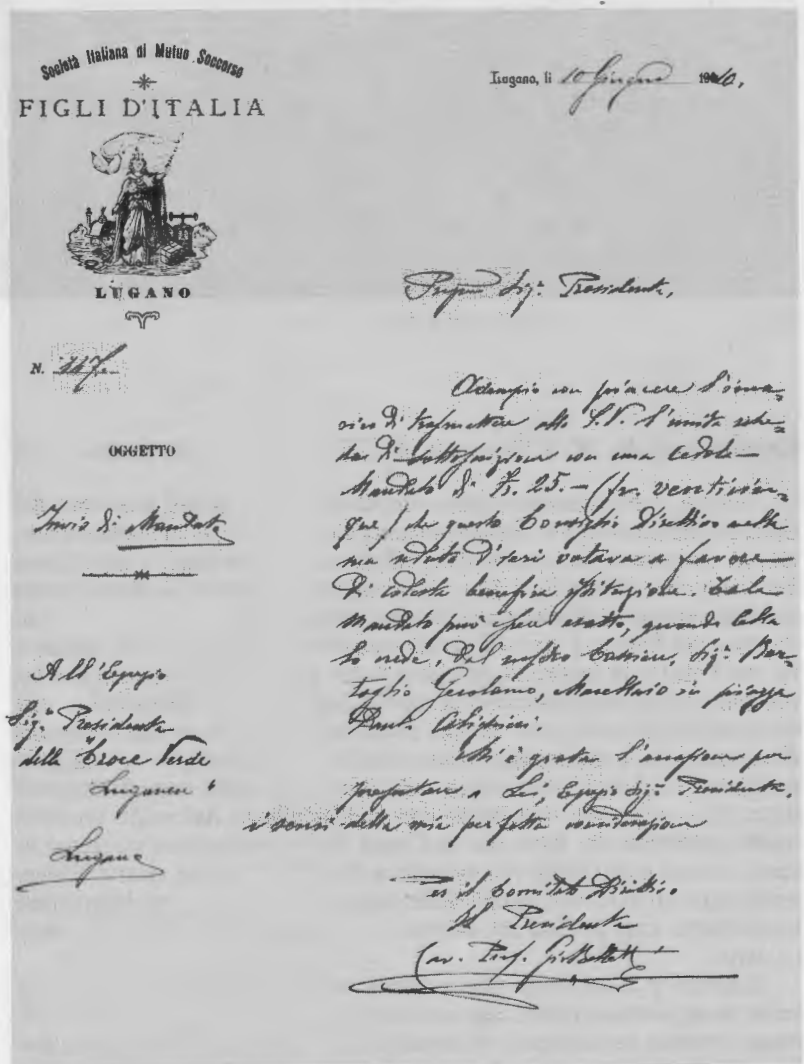 Società Italiana di Mutuo Soccorso
FIGLI D'ITALIA
LUGANO
Lugano, li 10 Giugno 1910,
N. 147
OGGETTO
Invio di Mandato
All'Egregio
Sig.r Presidente
della "Croce Verde
Luganese"
Lugano
Sig.r Presidente,
Adempio con piacere l'inca-
rico di trasmettere alla S.V. l'unita sche-
da di sottoscrizione con una cedola-
Mandato di Fr. 25.- (fr. venticin-
que) che questo Consiglio Direttivo nella
sua seduta d'ieri votava a favore
di codesta benefica istituzione. Tale
mandato può essere esatto, quando Ella
lo crede, dal nostro Cassiere, Sig.r Bar-
taglio Gerolamo, Macellaio in piazza
Dante Alighieri.
Mi è grata l'occasione per
presentare a Lei, Egregio Sig.r Presidente,
i sensi della mia perfetta considerazione
Per il Comitato Direttivo
Il Presidente
Cav. Prof.